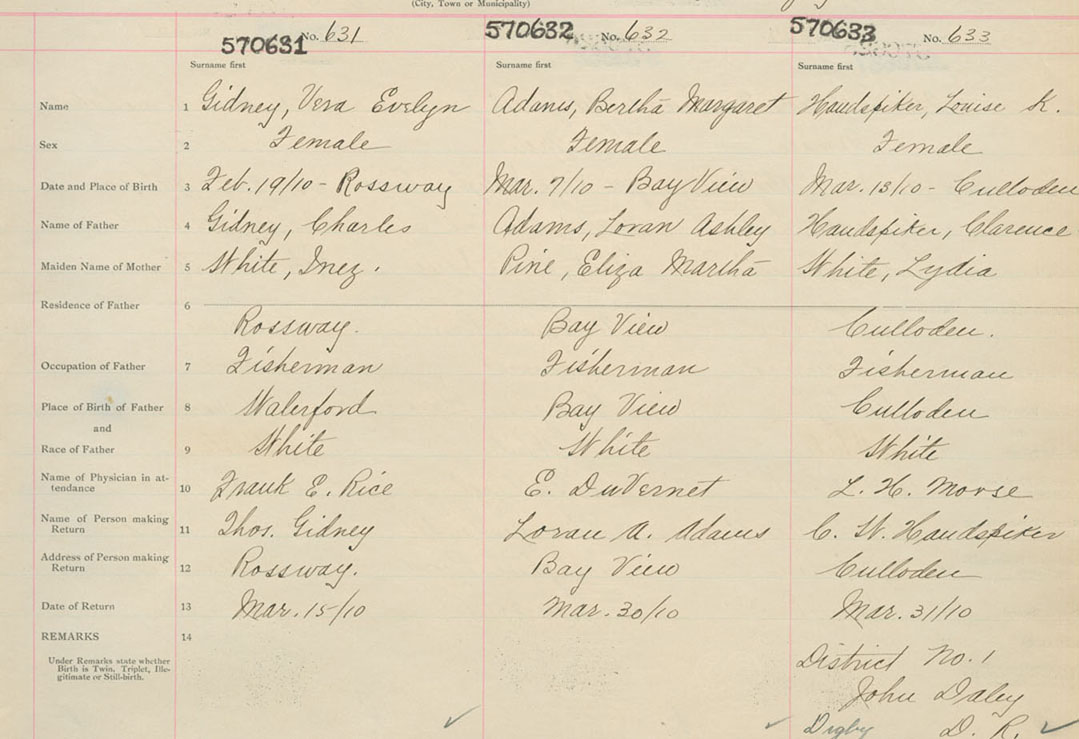 (City, Town or Municipality)
570631 No. 631 570632 No. 632 570633 No. 633
Surname first Surname first Surname first
Name 1 Gidney, Vera Evelyn Adams, Bertha Margaret Handspiker, Louise K.
Sex 2 Female Female Female
Date and Place of Birth 3 Feb. 19/10 - Rossway Mar. 7/10 - Bay View Mar. 13/10 - Culloden
Name of Father 4 Gidney, Charles Adams, Loran Ashley Handspiker, Clarence
Maiden Name of Mother 5 White, Inez. Pine, Eliza Martha White, Lydia
Residence of Father 6
Rossway. Bay View Culloden.
Occupation of Father 7 Fisherman Fisherman Fisherman
Place of Birth of Father 8 Waterford Bay View Culloden
and
Race of Father 9 White White White
Name of Physician in at-
tendance 10 Frank E. Rice E. DuVernet L. H. Morse
Name of Person making
Return 11 Thos. Gidney Loran A. Adams C. W. Handspiker
Address of Person making
Return 12 Rossway. Bay View Culloden
Date of Return 13 Mar. 15/10 Mar. 30/10 Mar. 31/10
REMARKS 14
Under Remarks state whether
Birth is Twin, Triplet, Ille-
gitimate or Still-birth.
District No. 1
John Daley
Digby D. R.